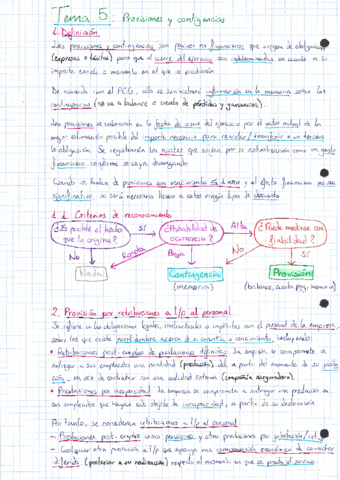 Tema 5: Provisiones y contigencias
1. Definición
Las provisiones y contingencias son pasivos no financieros que surgen de obligaciones
(expresas o tácitas) pero que al cierre del ejercicio son indeterminados en cuanto a su
importe exacto o momento en el que se producirán.
De acuerdo con el PCG, sólo se suministrará información en la memoria sobre las
contingencias (no va a balance o cuenta de pérdidas y ganancias).
Las provisiones se valorarán en la fecha de cierre del ejercicio por el valor actual de la
mejor estimación posible del importe necesario para cancelar/transferir a un tercero
la obligación. Se registrarán los ajustes que surjan por su actualización como un gasto
financiero conforme se vayan devengando.
Cuando se traten de provisiones con vencimiento ≤ 1 año y el efecto financiero no sea
significativo, no será necesario llevar a cabo ningún tipo de descuento.
1.1. Criterios de reconocimiento
¿Es posible el hecho que lo origina?
Sí
¿Probabilidad de ocurrencia?
Alta
¿Puede medirse con fiabilidad?
No
Remota
Baja
No
Sí
Nada
Contingencia
Provisión
(memoria)
(balance, cuenta pyg, memoria)
2. Provisión por retribuciones a l/p al personal
Se refiere a las obligaciones legales, contractuales o implícitas con el personal de la empresa,
sobre las que existe incertidumbre acerca de su cuantía o vencimiento, incluyendo:
• Retribuciones post-empleo de prestaciones definidas: la empresa se compromete a
entregar a sus empleados una cantidad (prestación) a partir del momento de su jubilación,
en vez de contratar con una entidad externa (compañía aseguradora).
• Prestaciones por incapacidad: la empresa se compromete a entregar una prestación a
sus empleados que hayan sido objeto de incapacidad, a partir de su declaración
Por tanto, se consideran retribuciones a l/p al personal
- Prestaciones post-empleo como pensiones y otras prestaciones por jubilación/retiro
- Cualquier otra prestación a l/p que suponga una compensación económica de carácter
diferido (posterior a su realización) respecto al momento en que se presta el servicio.